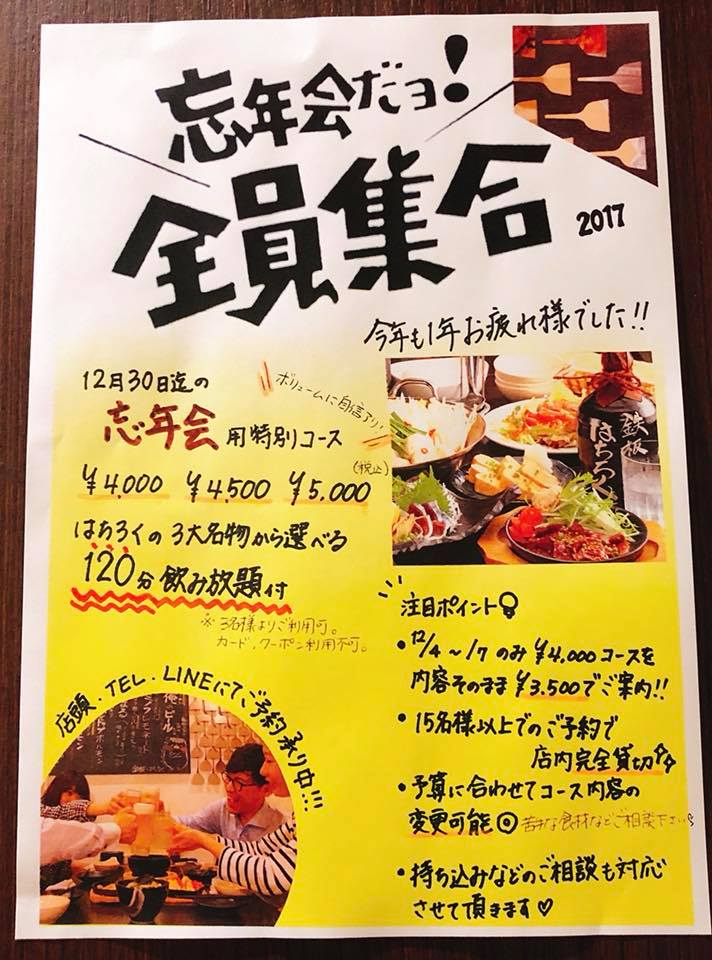 忘年会だヨ!
全員集合
2017
今年も1年お疲れ様でした!!
12月30日迄の
ボリュームに自信アリ!
忘年会用特別コース
¥4,000 ¥4,500 ¥5,000(税込)
はちろくの3大名物から選べる
120分飲み放題付
※3名様よりご利用可。
カード、クーポン利用不可。
鉄板
はちろく
店頭.TEL.LINEにてご予約承り中!!!
注目ポイント
・12/4〜1/7のみ¥4,000コースを
内容そのまま¥3,500でご案内!!
・15名様以上でのご予約で
店内完全貸切
・予算に合わせてコース内容の
変更可能◎苦手な食材などご相談下さい
・持ち込みなどのご相談も対応
させて頂きます♡